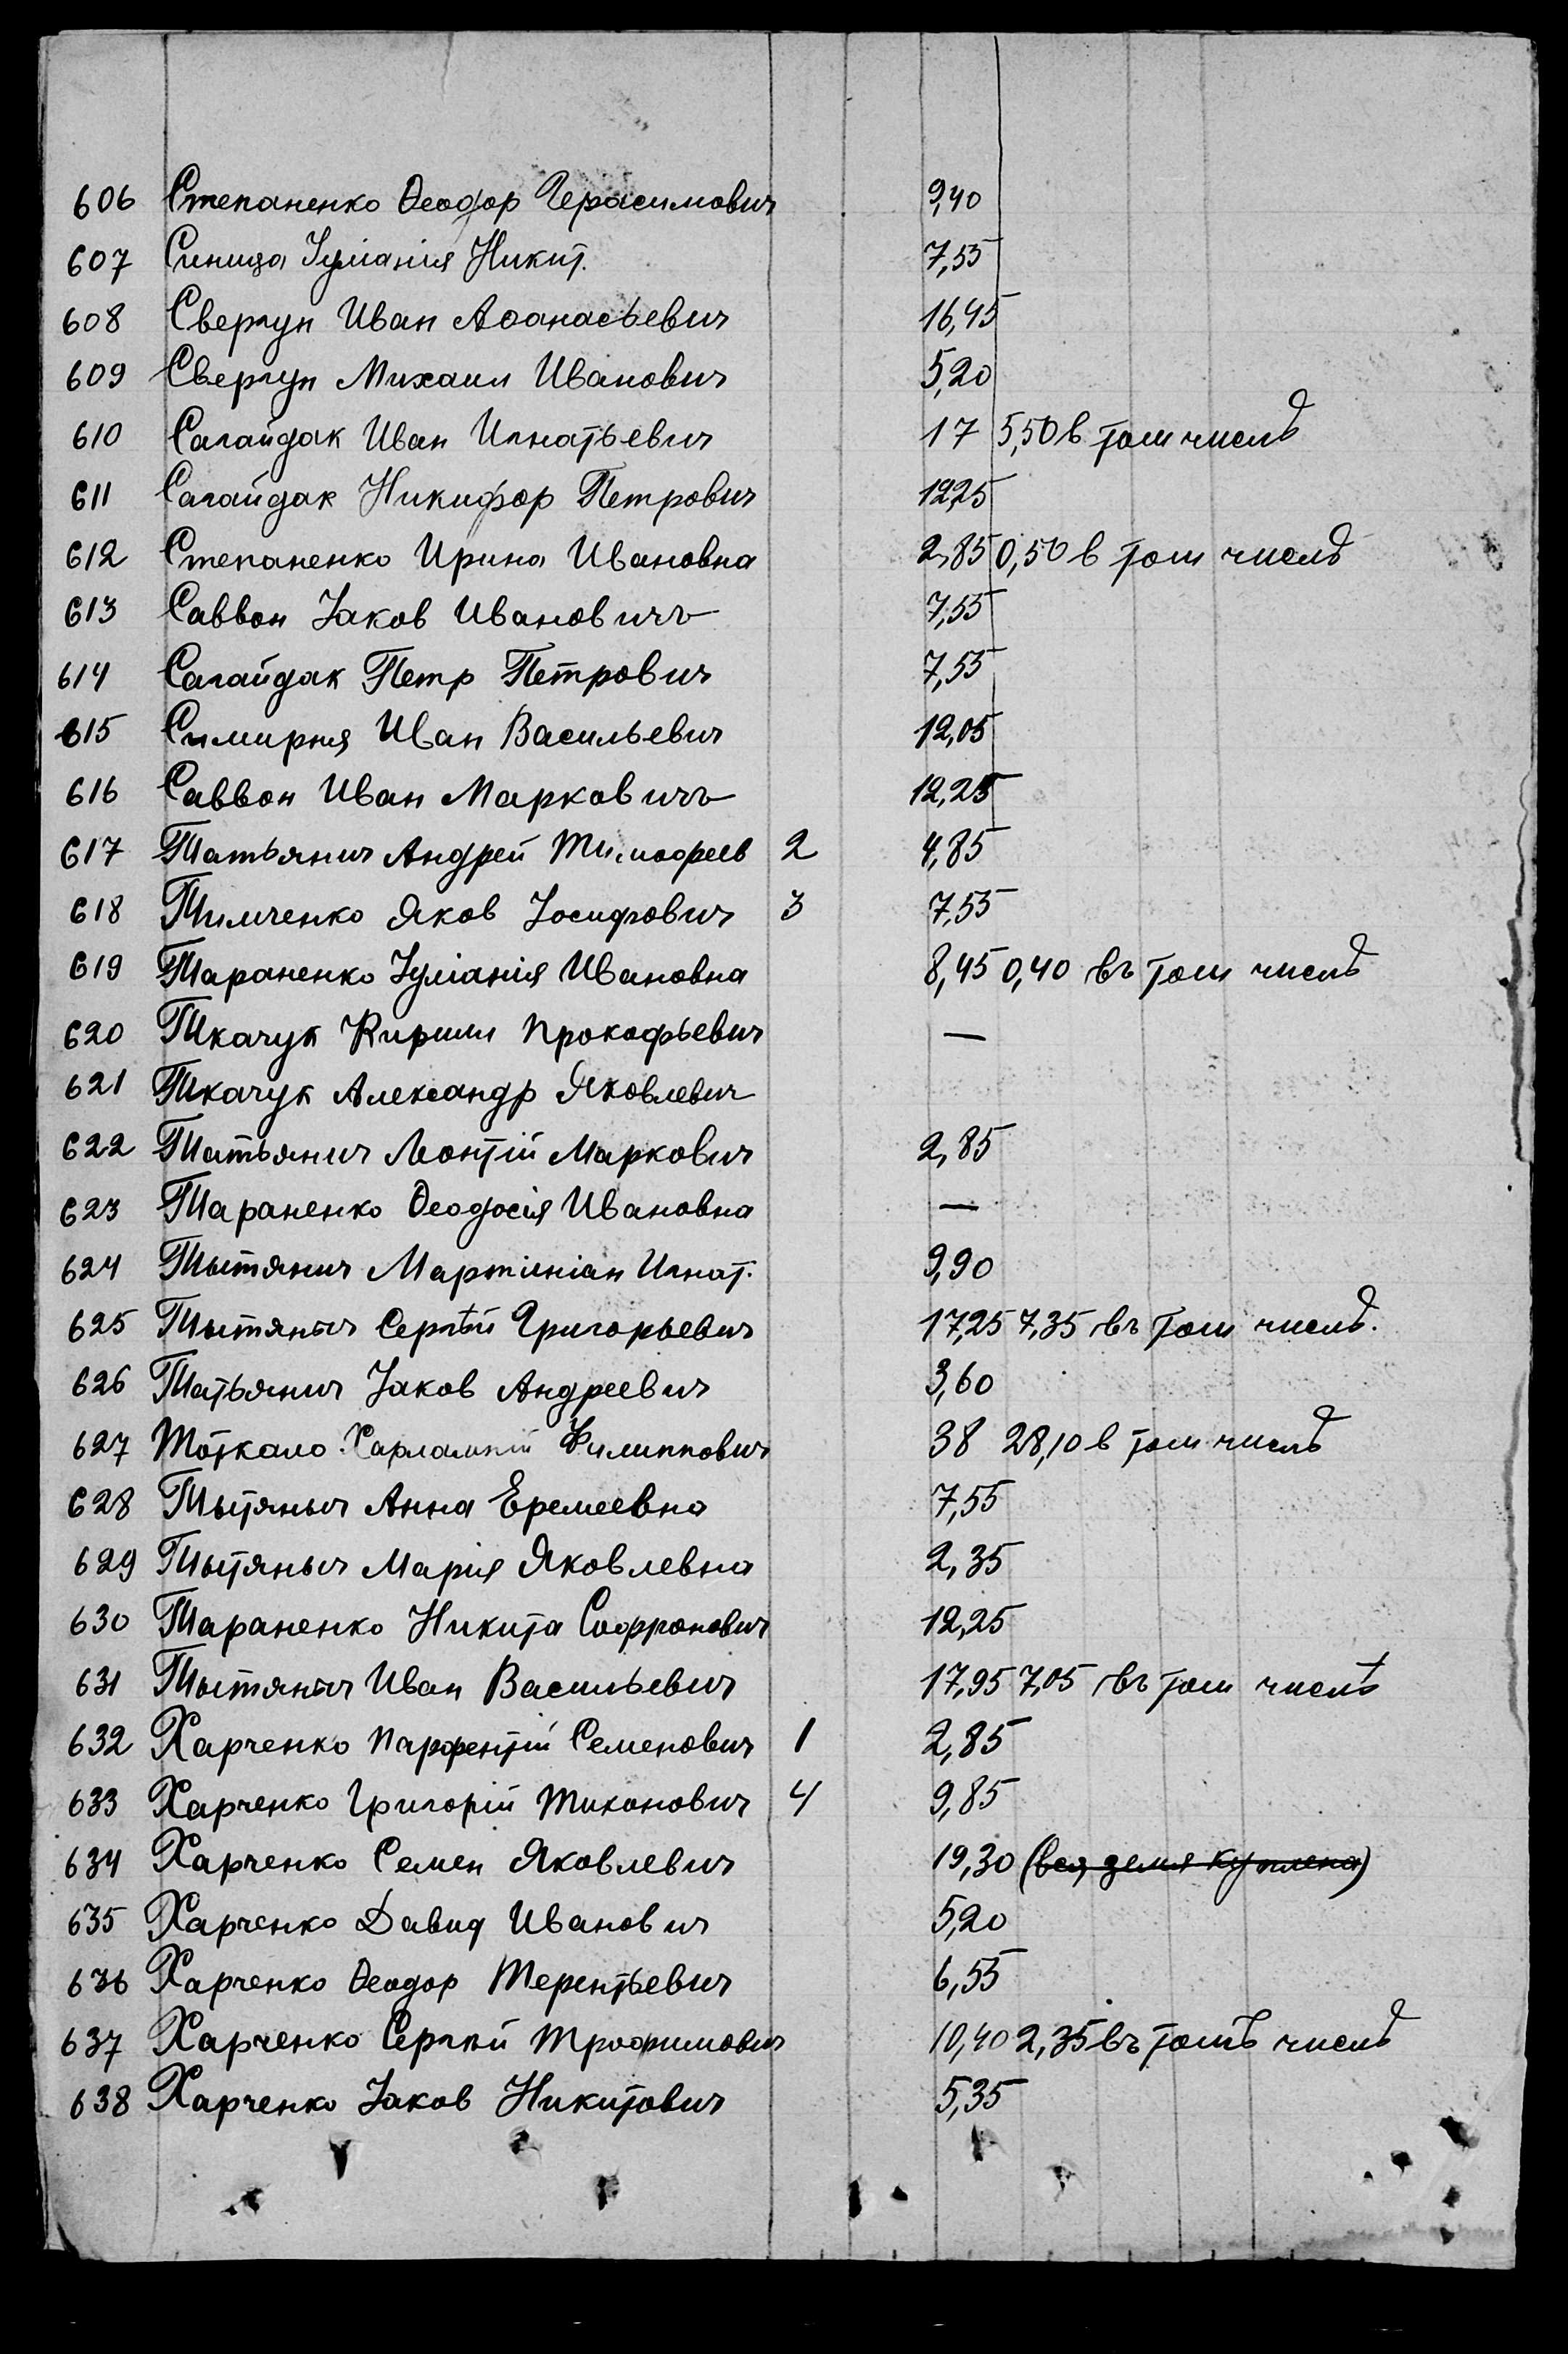 606 Степаненко Ѳеодор Герасимович 9,40
607 Синица Іуліанія Никит. 7,55
608 Свергун Иван Аѳанасьевич 16,45
609 Свергун Михаил Иванович 5,20
610 Сагайдак Иван Игнатьевич 17 5,50 в том числѣ
611 Сагайдак Никифор Петрович 12,25
612 Степаненко Ирина Ивановна 2,85 0,50 в том числѣ
613 Саввон Іаков Ивановичъ 7,55
614 Сагайдак Петр Петрович 7,55
615 Симирня Иван Васильевич 12,05
616 Саввон Иван Марковичъ 12,25
617 Татьянич Андрей Тимофеев 2 4,85
618 Тимченко Яков Іосифович 3 7,55
619 Тараненко Іуліанія Ивановна 8,45 0,40 въ том числѣ
620 Ткачук Кирилл Прокофьевич —
621 Ткачук Александр Яковлевич
622 Татьянич Леонтій Маркович 2,85
623 Тараненко Ѳеодосія Ивановна —
624 Тытянич Мартініан Игнат. 9,90
625 Тытяныч Сергѣй Григорьевич 17,25 7,35 въ том числѣ.
626 Татьянич Іаков Андреевич 3,60
627 Тоткало Харлампій Филиппович 38 28,10 в том числѣ
628 Тытяныч Анна Еремеевна 7,55
629 Тытяныч Марія Яковлевна 2,35
630 Тараненко Никита Софронович 12,25
631 Тытяныч Иван Васильевич 17,95 7,05 въ том числѣ
632 Харченко Парфентій Семенович 1 2,85
633 Харченко Григорій Тихонович 4 9,85
634 Харченко Семен Яковлевич 19,30 (вся земля куплена)
635 Харченко Давид Иванович 5,20
636 Харченко Ѳеодор Терентьевич 6,55
637 Харченко Сергѣй Трофимович 10,40 2,35 въ томъ числѣ
638 Харченко Іаков Никитович 5,35